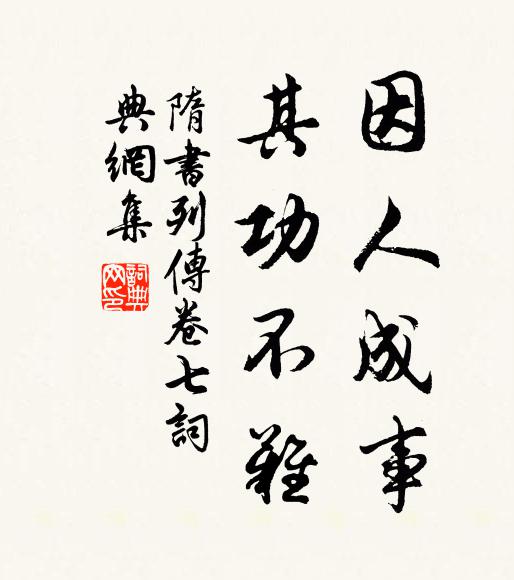 因人成事
其功不難
隋書列傳卷七詞
典網集
詞典
网印